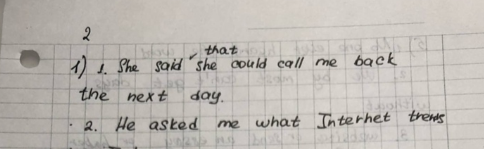 2
that
1) 1. She said she could call me back
the next day.
2. He asked me what Internet